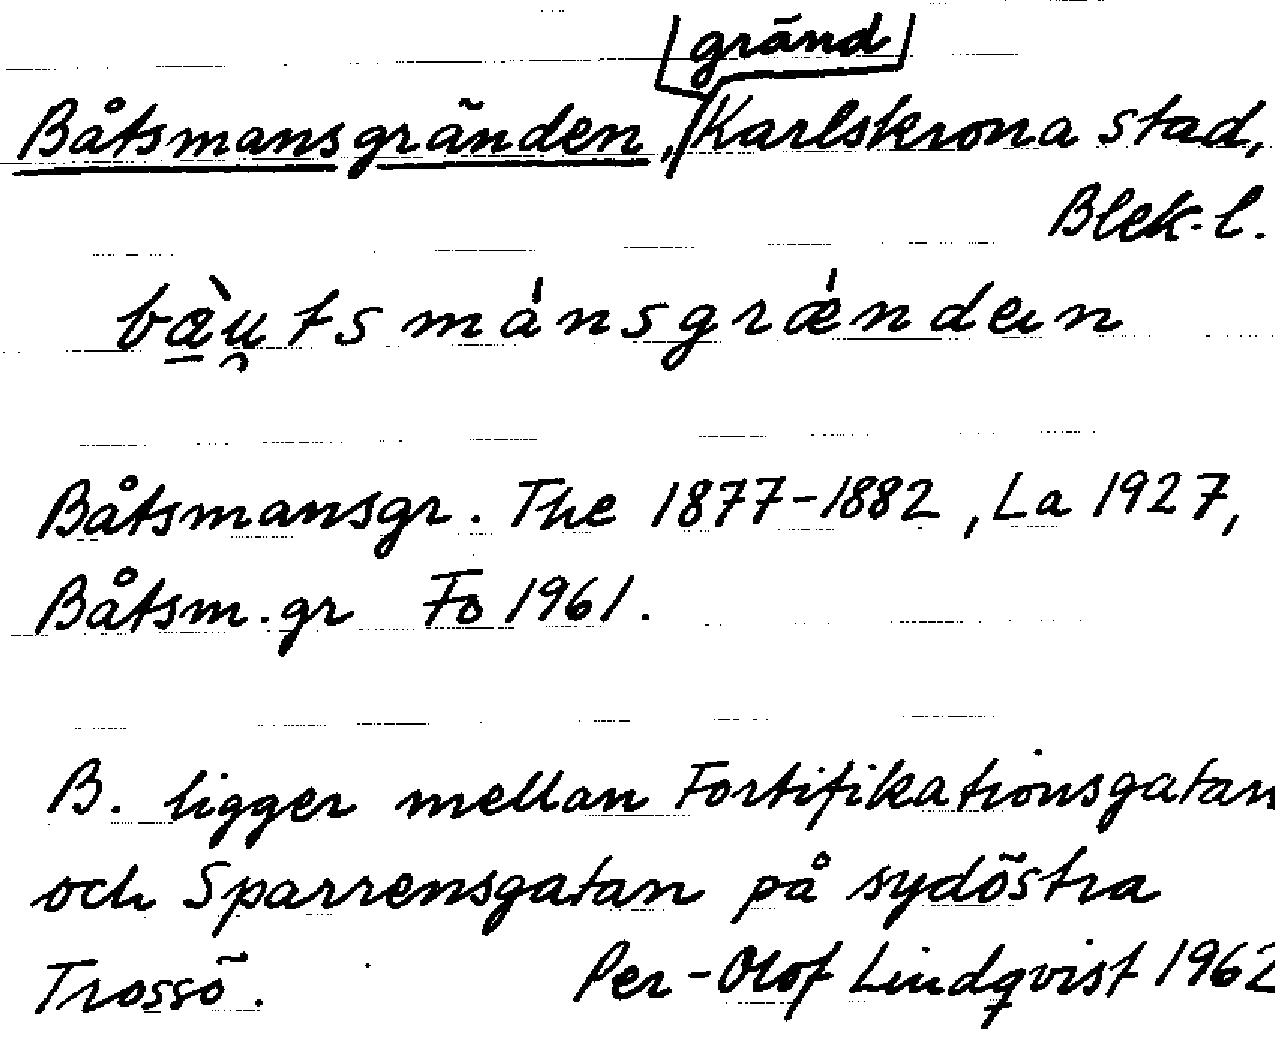 gränd
Båtsmansgränden, Karlskrona stad,
Blek. l.
Båtsmansgr. The 1877-1882, La 1927,
Båtsm.gr Fo 1961.
B. ligger mellan Fortifikationsgatan
och Sparrensgatan på sydöstra
Trossö.
Per-Olof Lindqvist 1962